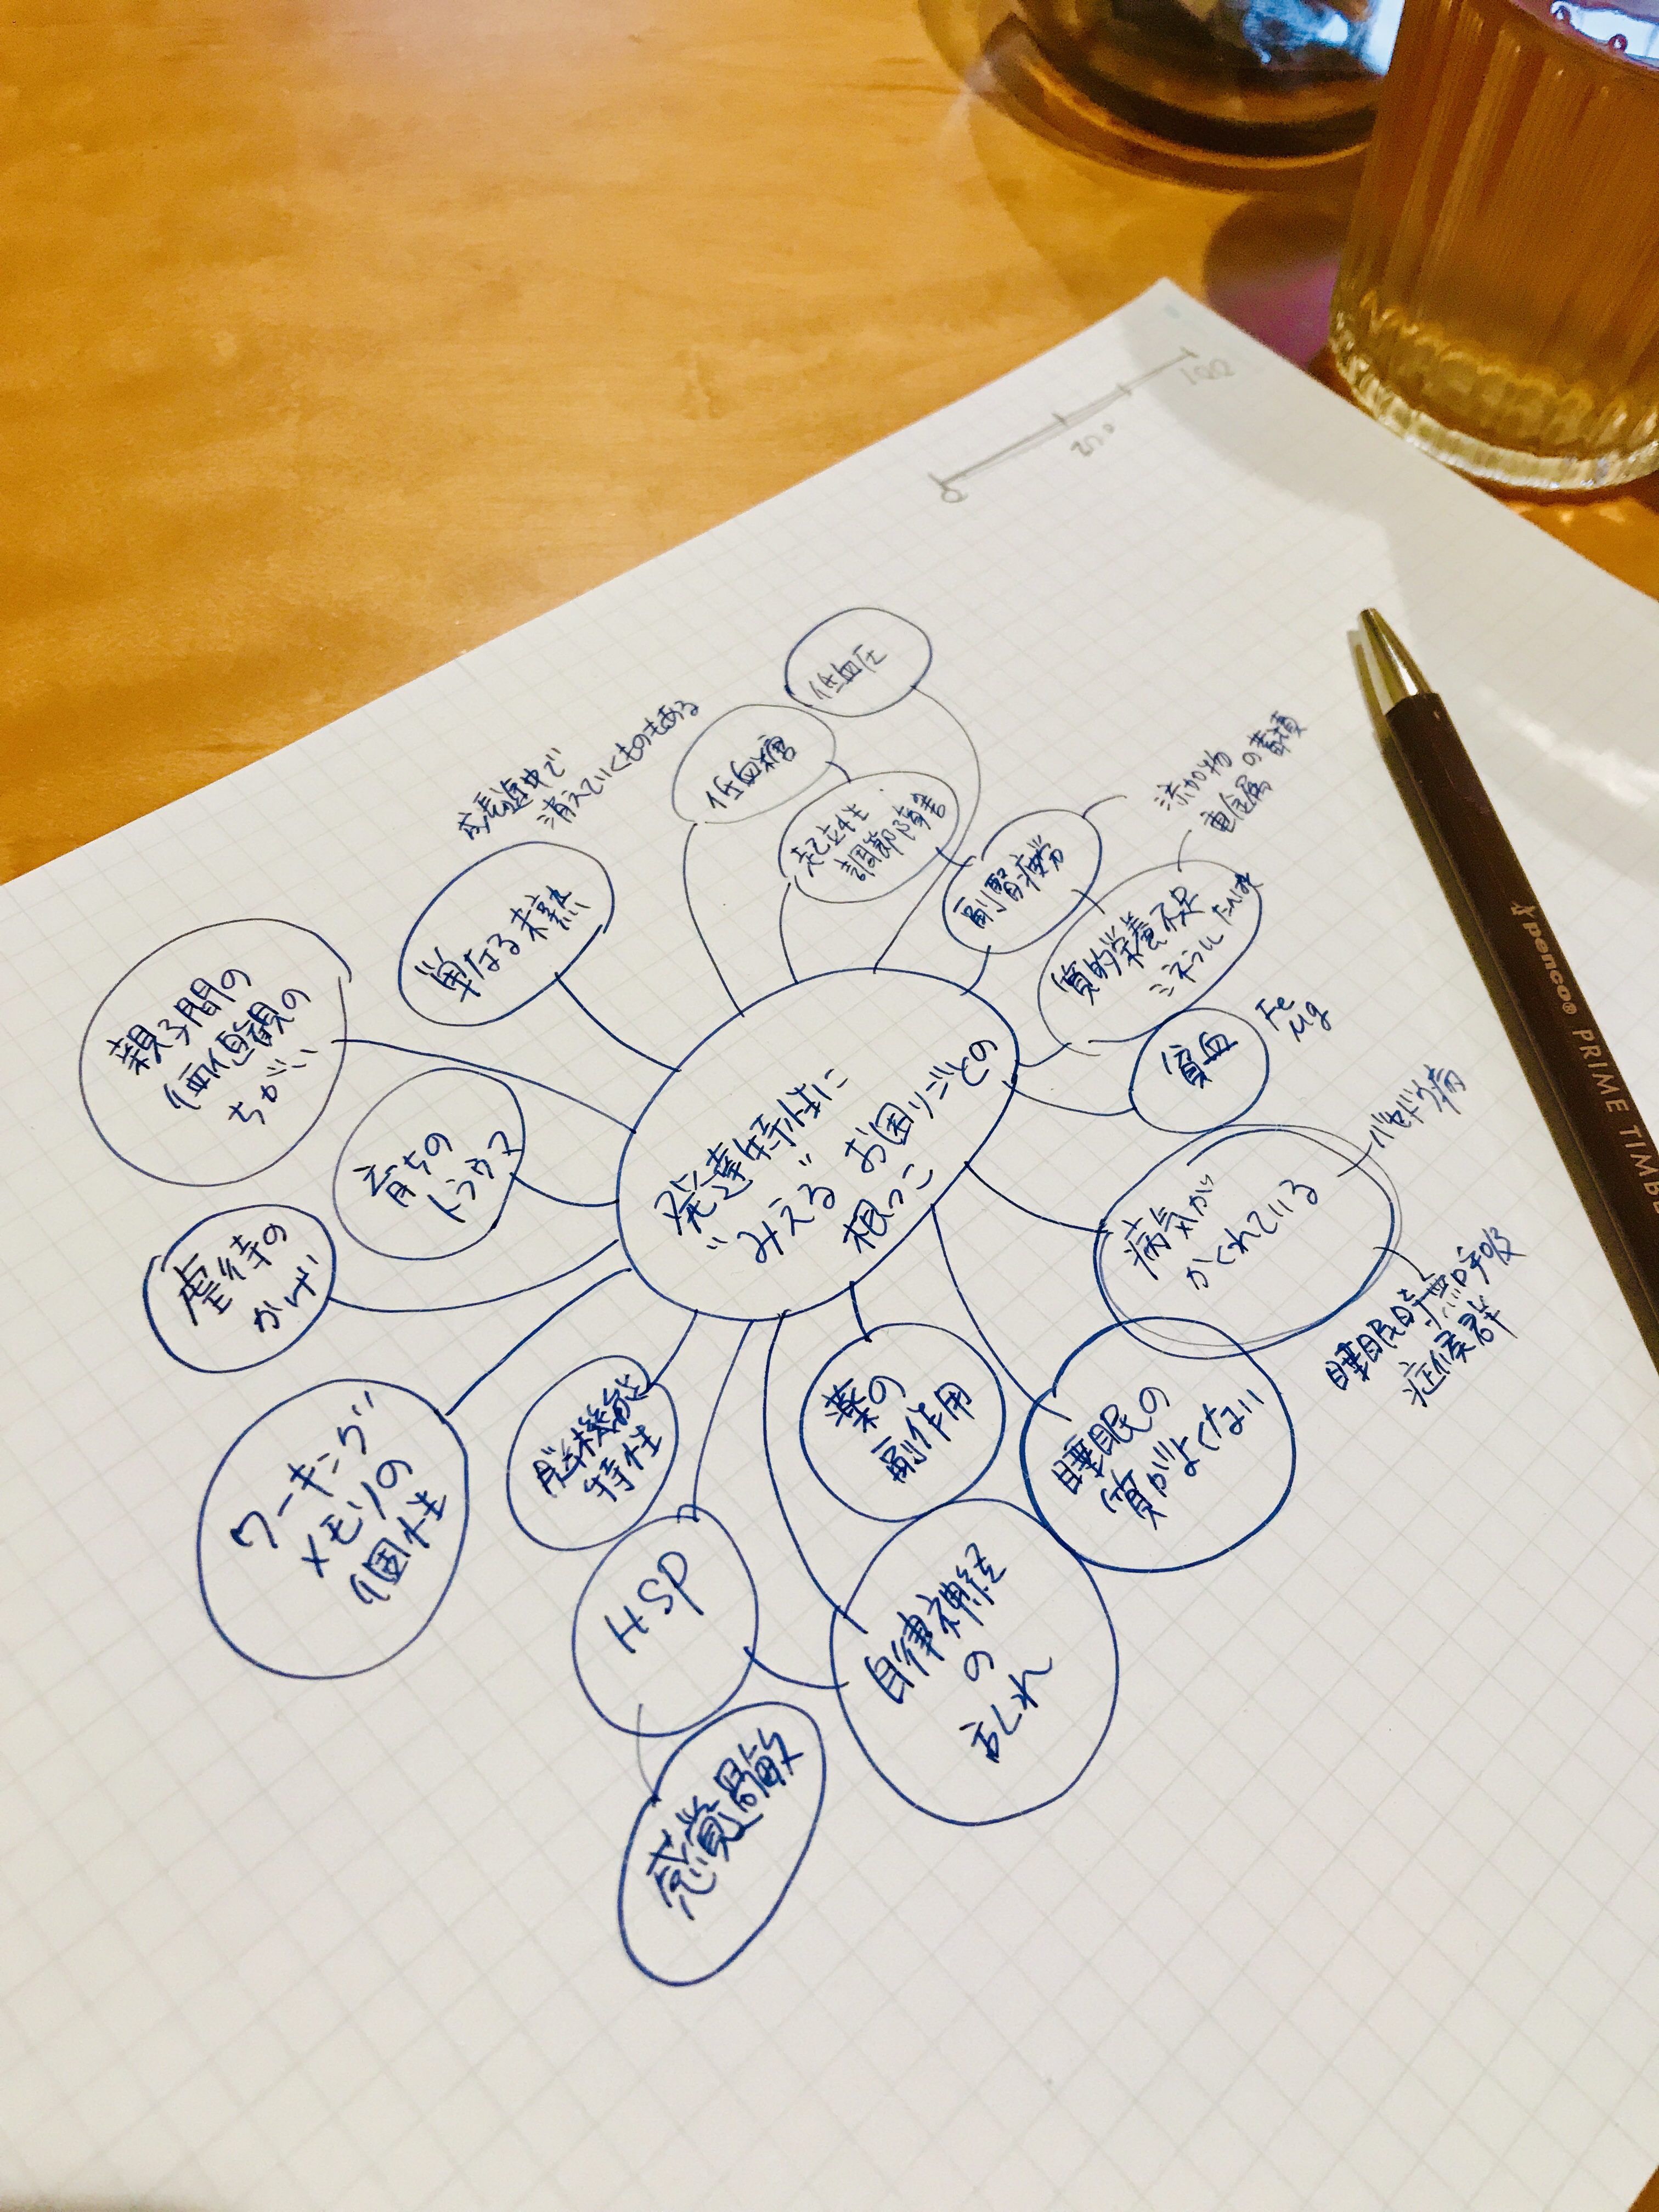 100
50
0
低血圧
低血糖
起立性
調節障害
成長過程で
消えていくものもある
添加物
重金属の蓄積
副腎疲労
単なる未熟
質的栄養不足
ミネラル たんぱく
親子間の
価値観の
ちがい
貧血
Fe
Mg
発達特性に
"みえる" お困りごとの
根っこ
育ちの
トラウマ
病気が
かくれている
バセドウ病
睡眠時無呼吸
症候群
虐待の
かげ
ワーキング
メモリの
個性
脳機能
特性
薬の
副作用
睡眠の
質がよくない
HSP
自律神経
の
乱れ
感覚過敏
penco® PRIME TIMBE